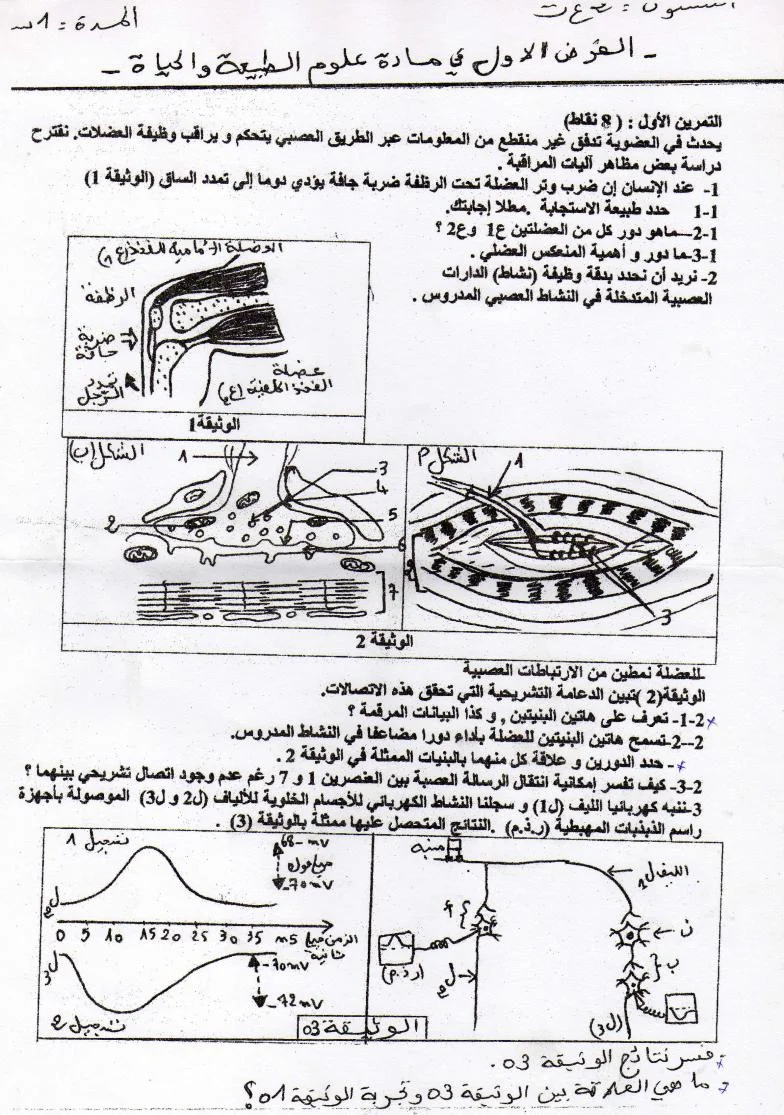 المدة : 1 سا
- الفرض الاول في مادة علوم الطبيعة والحياة -
التمرين الأول : ( 8 نقاط)
يحدث في العضوية تدفق غير منقطع من المعلومات عبر الطريق العصبي يتحكم و يراقب وظيفة العضلات. نقترح
دراسة بعض مظاهر آليات المراقبة .
1- عند الإنسان إن ضرب وتر العضلة تحت الرظفة ضربة جافة يؤدي دوما إلى تمدد الساق (الوثيقة 1)
1-1 حدد طبيعة الاستجابة .معللا إجابتك.
1-2—ماهو دور كل من العضلتين ع1 وع2 ؟
1-3-ما دور و أهمية المنعكس العضلي .
2- نريد أن نحدد بدقة وظيفة (نشاط) الدارات
العصبية المتدخلة في النشاط العصبي المدروس .
العضلة الأمامية للفخذ (ع1)
الرظفة
ضربة
جافة
تمدد
الرجل
عضلة
الفخذ الخلفية (ع2)
الوثيقة1
الشكل أ
1
2
3
الشكل (ب)
1
2
3
4
5
6
7
الوثيقة 2
للعضلة نمطين من الارتباطات العصبية
الوثيقة(2 )تبين الدعامة التشريحية التي تحقق هذه الاتصالات.
2-1- تعرف على هاتين البنيتين , و كذا البيانات المرقمة ؟
2--2-تسمح هاتين البنيتين للعضلة بأداء دورا مضاعفا في النشاط المدروس.
- حدد الدورين و علاقة كل منهما بالبنيات الممثلة في الوثيقة 2 .
2-3- كيف تفسر إمكانية انتقال الرسالة العصبة بين العنصرين 1 و 7 رغم عدم وجود اتصال تشريحي بينهما ؟
3-ننبه كهربائيا الليف (ل1) و سجلنا النشاط الكهربائي للأجسام الخلوية للألياف (ل2 و ل3) الموصولة بأجهزة
راسم الذبذبات المهبطية (ر.ذ.م) .النتائج المتحصل عليها ممثلة بالوثيقة (3) .
منبه
الليف ل1
أ
ن
ب
(ر.ذ.م)
ل2
(ل3)
تسجيل 1
-68 mv
-70mv
ل2
0 5 10 15 20 25 30 35 ms الزمن ميلي
ثانية
ل3
-70mv
-72mv
تسجيل 2
الوثيقة 03
- فسر نتائج الوثيقة 03 .
- ما هي العلاقة بين الوثيقة 03 وتجربة الوثيقة 01 ؟